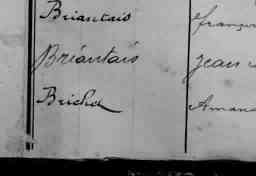 Briantais françois
Briantais Jean
Brichet Aman